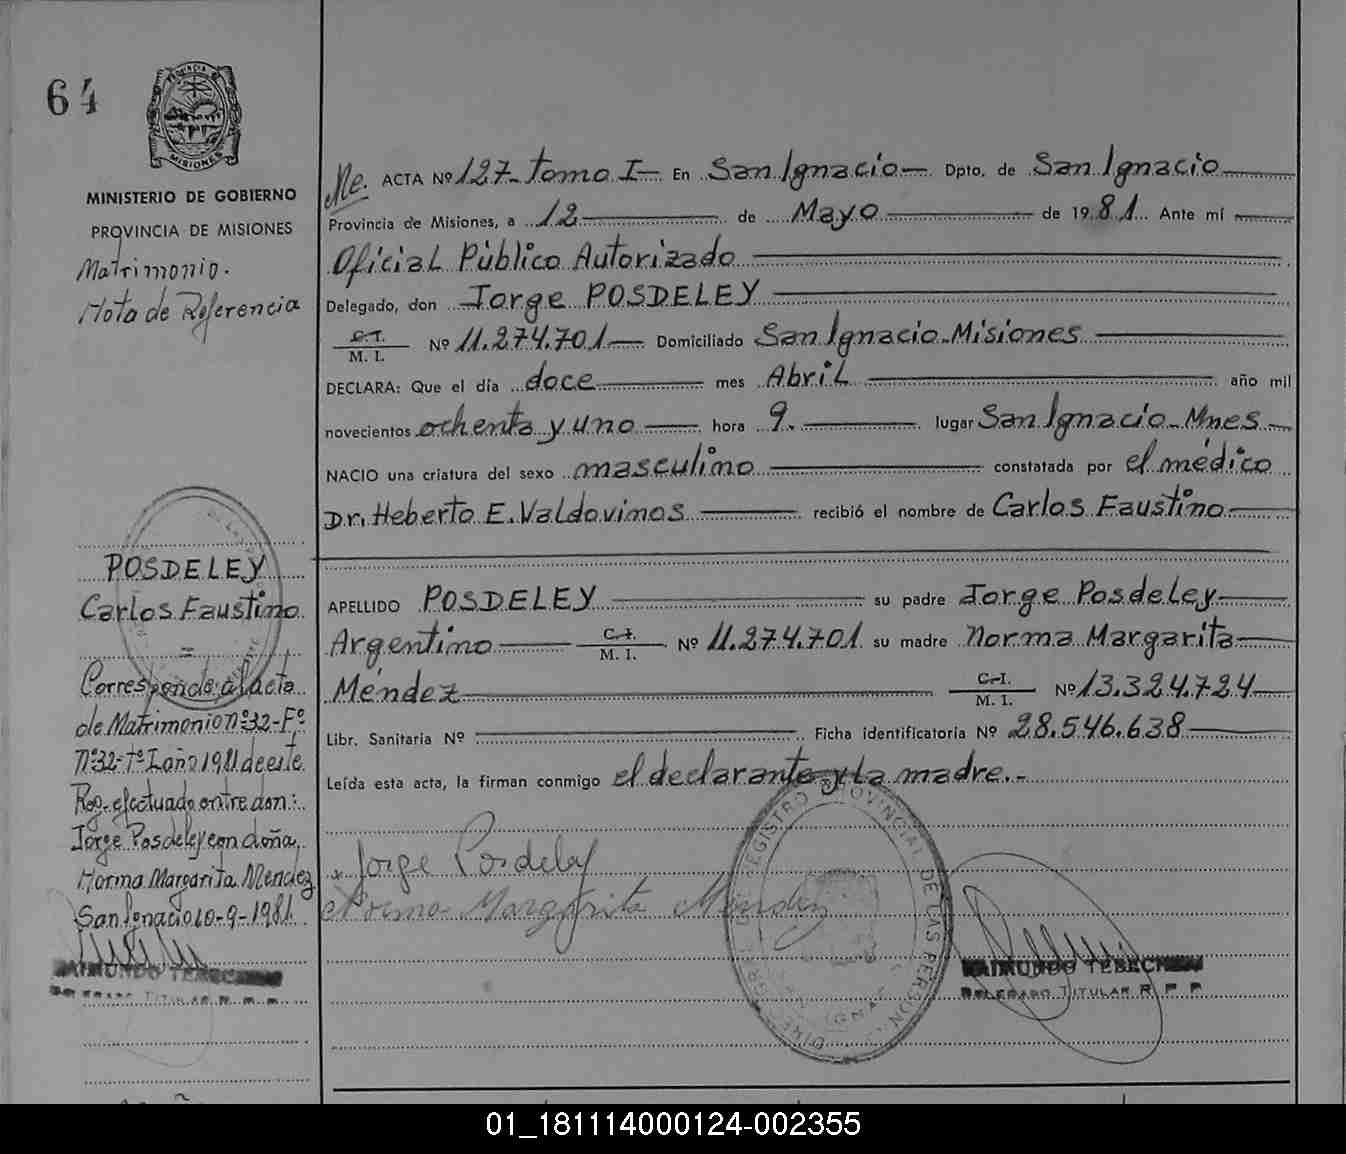 64
PROVINCIA DE
MISIONES
MINISTERIO DE GOBIERNO
PROVINCIA DE MISIONES
Matrimonio.
Nota de Referencia
POSDELEY
Carlos Faustino
=
Corresponde al acta
de Matrimonio nº 32-Fº
Nº 32-Tº I año 1981 de este
Reg. efectuado entre don:
Jorge Posdeley con doña
Norma Margarita Mendez
San Ignacio 10-9-1981.
RAIMUNDO
DELEGADO TITULAR R. P. P.
ACTA Nº 127- tomo I- En San Ignacio- Dpto. de San Ignacio
Provincia de Misiones, a 12 de Mayo de 1981. Ante mí
Oficial Público Autorizado
Delegado, don Jorge POSDELEY
C.I.
M. I. Nº 11.274.701 Domiciliado San Ignacio-Misiones
DECLARA: Que el día doce mes Abril año mil
novecientos ochenta y uno hora 9. lugar San Ignacio-Mnes
NACIO una criatura del sexo masculino constatada por el médico
Dr. Heberto E. Valdovinos recibió el nombre de Carlos Faustino
APELLIDO POSDELEY su padre Jorge Posdeley
Argentino C.I.
M. I. Nº 11.274.701 su madre Norma Margarita
Méndez C.I.
M. I. Nº 13.324.724
Libr. Sanitaria Nº Ficha identificatoria Nº 28.546.638
Leída esta acta, la firman conmigo el declarante y la madre.-
Jorge Posdeley
Norma Margarita Méndez
REGISTRO PROVINCIAL DE LAS PERSONAS
RAIMUNDO
DELEGADO TITULAR R. P. P.
01_181114000124-002355